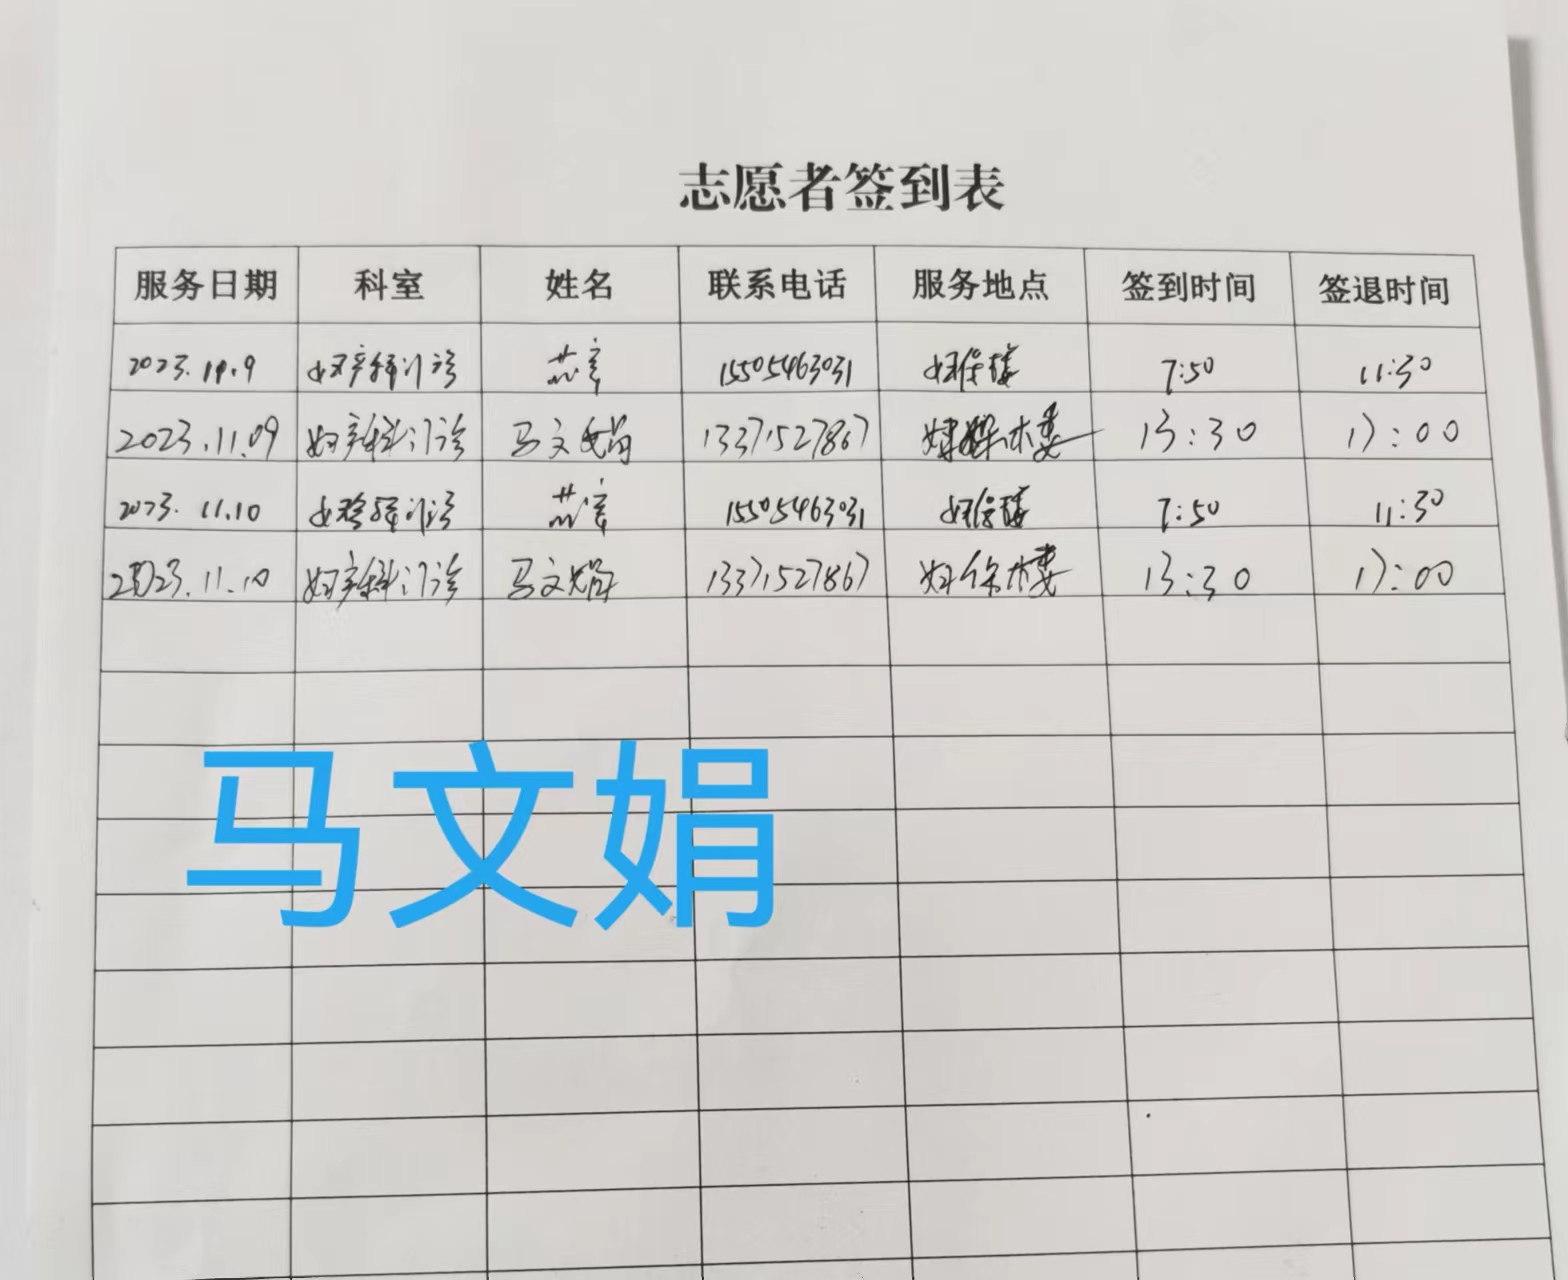 志愿者签到表
服务日期 科室 姓名 联系电话 服务地点 签到时间 签退时间
2023.11.9 妇产科门诊 15505463031 妇保楼 7:50 11:30
2023.11.09 妇产科门诊 马文娟 13371527867 楼 13:30 17:00
2023.11.10 妇产科门诊 15505463031 妇保楼 7:50 11:30
2023.11.10 妇产科门诊 马文娟 13371527867 妇保楼 13:30 17:00
马文娟